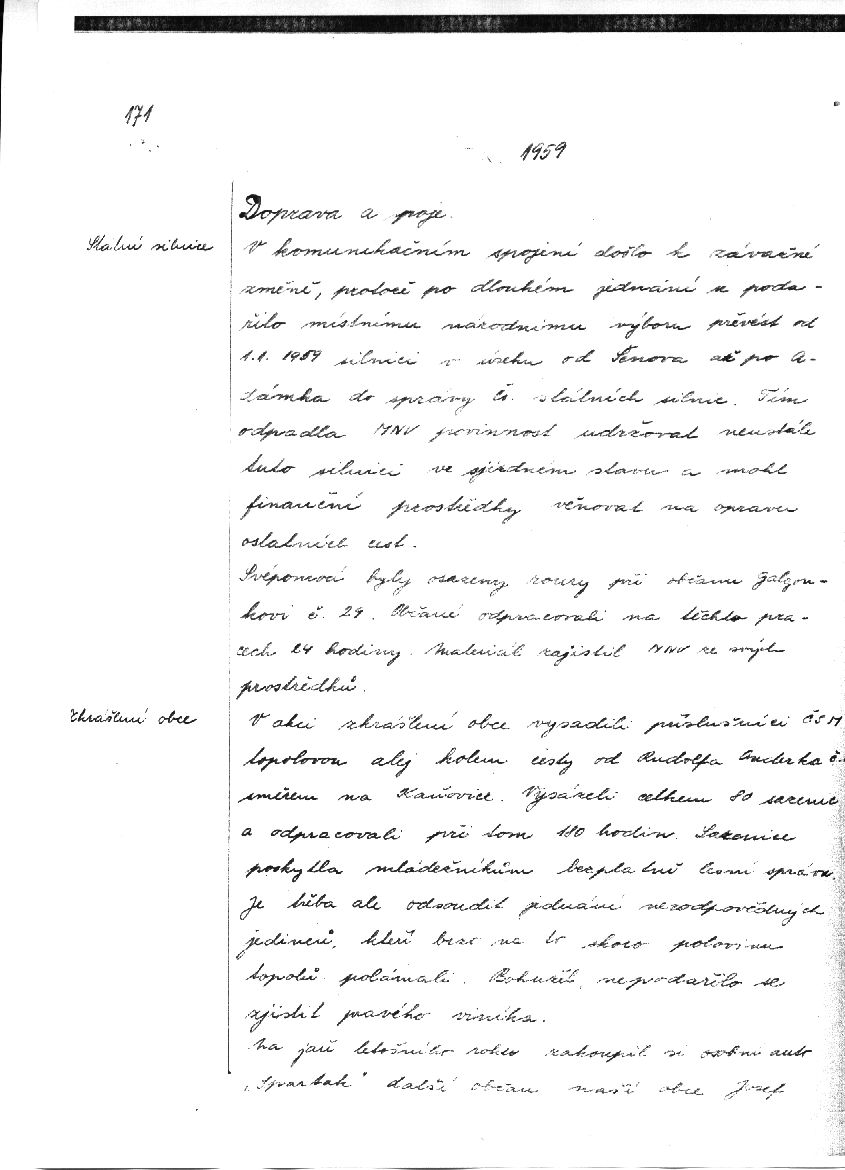 171
1959
Doprava a poje.
Státní silnice
V komunikačním spojení došlo k závažné
změně, protože po dlouhém jednání se poda-
řilo místnímu národnímu výboru převést od
1.1. 1959 silnici v úseku od Šenova až po A-
dámka do správy Čs. státních silnic. Tím
odpadla MNV povinnost udržovat neustále
tuto silnici ve sjízdném stavu a mohl
finanční prostředky věnovat na opravu
ostatních cest.
Svépomocí byly osazeny roury při občanu Galgon-
kovi č. 29. Občané odpracovali na těchto pra-
cech 24 hodiny. Materiál zajistil MNV ze svých
prostředků.
Zkrášlení obce
V akci zkrášlení obce vysadili příslušníci ČSM
topolovou alej kolem cesty od Rudolfa Anderka č.
směrem na Kaňovice. Vysázeli celkem 80 sazenic
a odpracovali při tom 180 hodin. Sazenice
poskytla mládežníkům bezplatně lesní správa.
Je třeba ale odsoudit jednání nezodpovědných
jedinců, kteří na to skoro polovinu
topolů polámali. Bohužel, nepodařilo se
zjistit pravého viníka.
Na jaře letošního roku zakoupil si osobní auto
"Spartak" další občan naší obce Josef